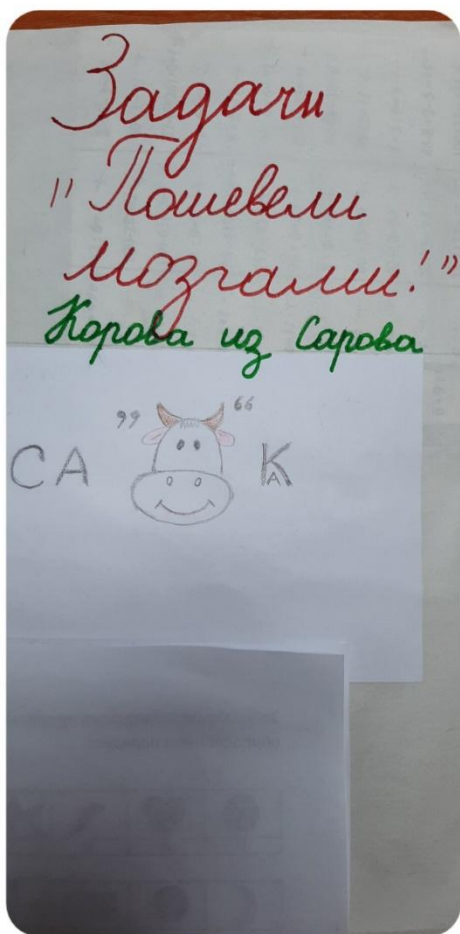 Задачи
"Пошевели
мозгами!"
Корова из Сарова
СА ,, “ К
А